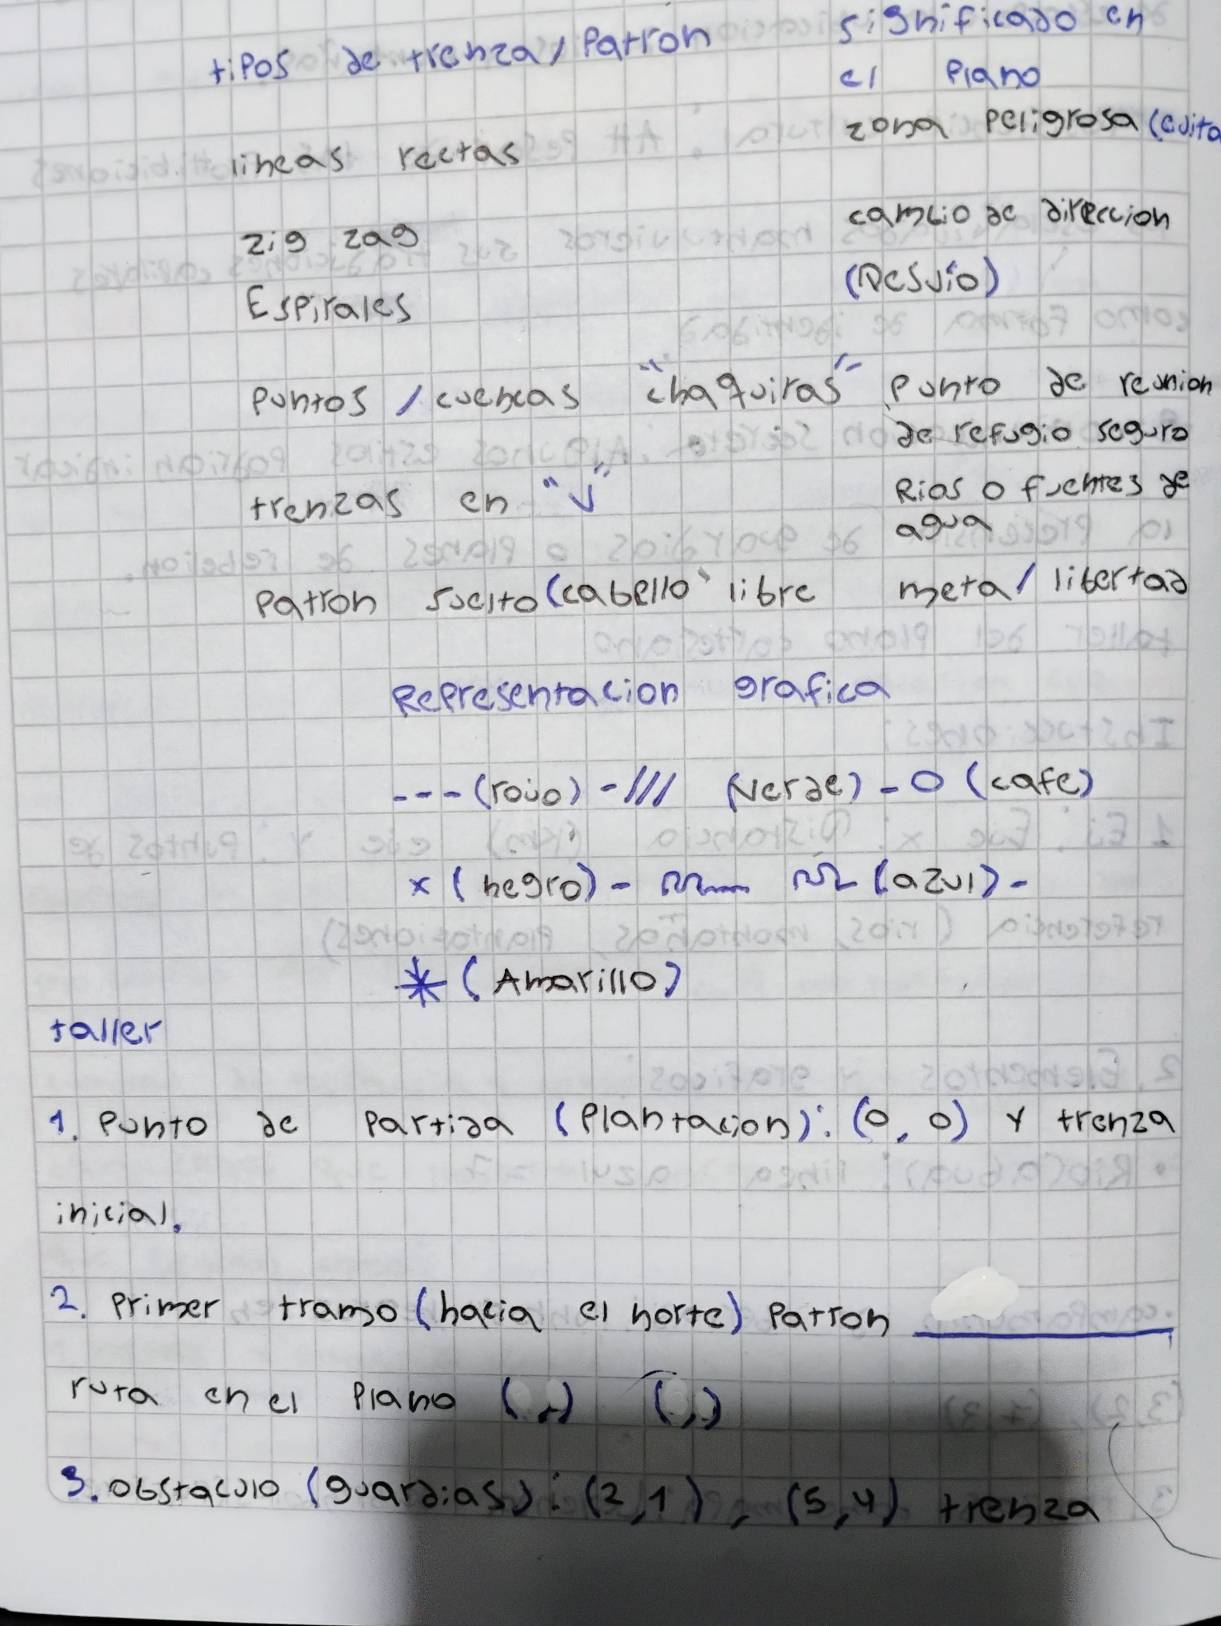 tipos de trenza / Patron significado en
el Plano
lineas rectas zona Peligrosa (evita
zig zag cambio de direccion
Espirales (Desvío)
Puntos / cuencas "chaquiras" Punto de reunion
de refugio seguro
trenzas en "V" Rios o fuentes de
agua
Patron suelto (cabello libre meta / libertad
Representacion grafica
--- (rojo) - /// (Verde) - O (cafe)
x (negro) - (azul) -
* (Amarillo)
taller
1. Punto de Partida (Plantacion): (0, 0) Y trenza
inicial.
2. Primer tramo (hacia el norte) Patron ________
ruta en el Plano ( , ) ( , )
3. Obstaculo (guardias): (2,1), (5,4) trenza